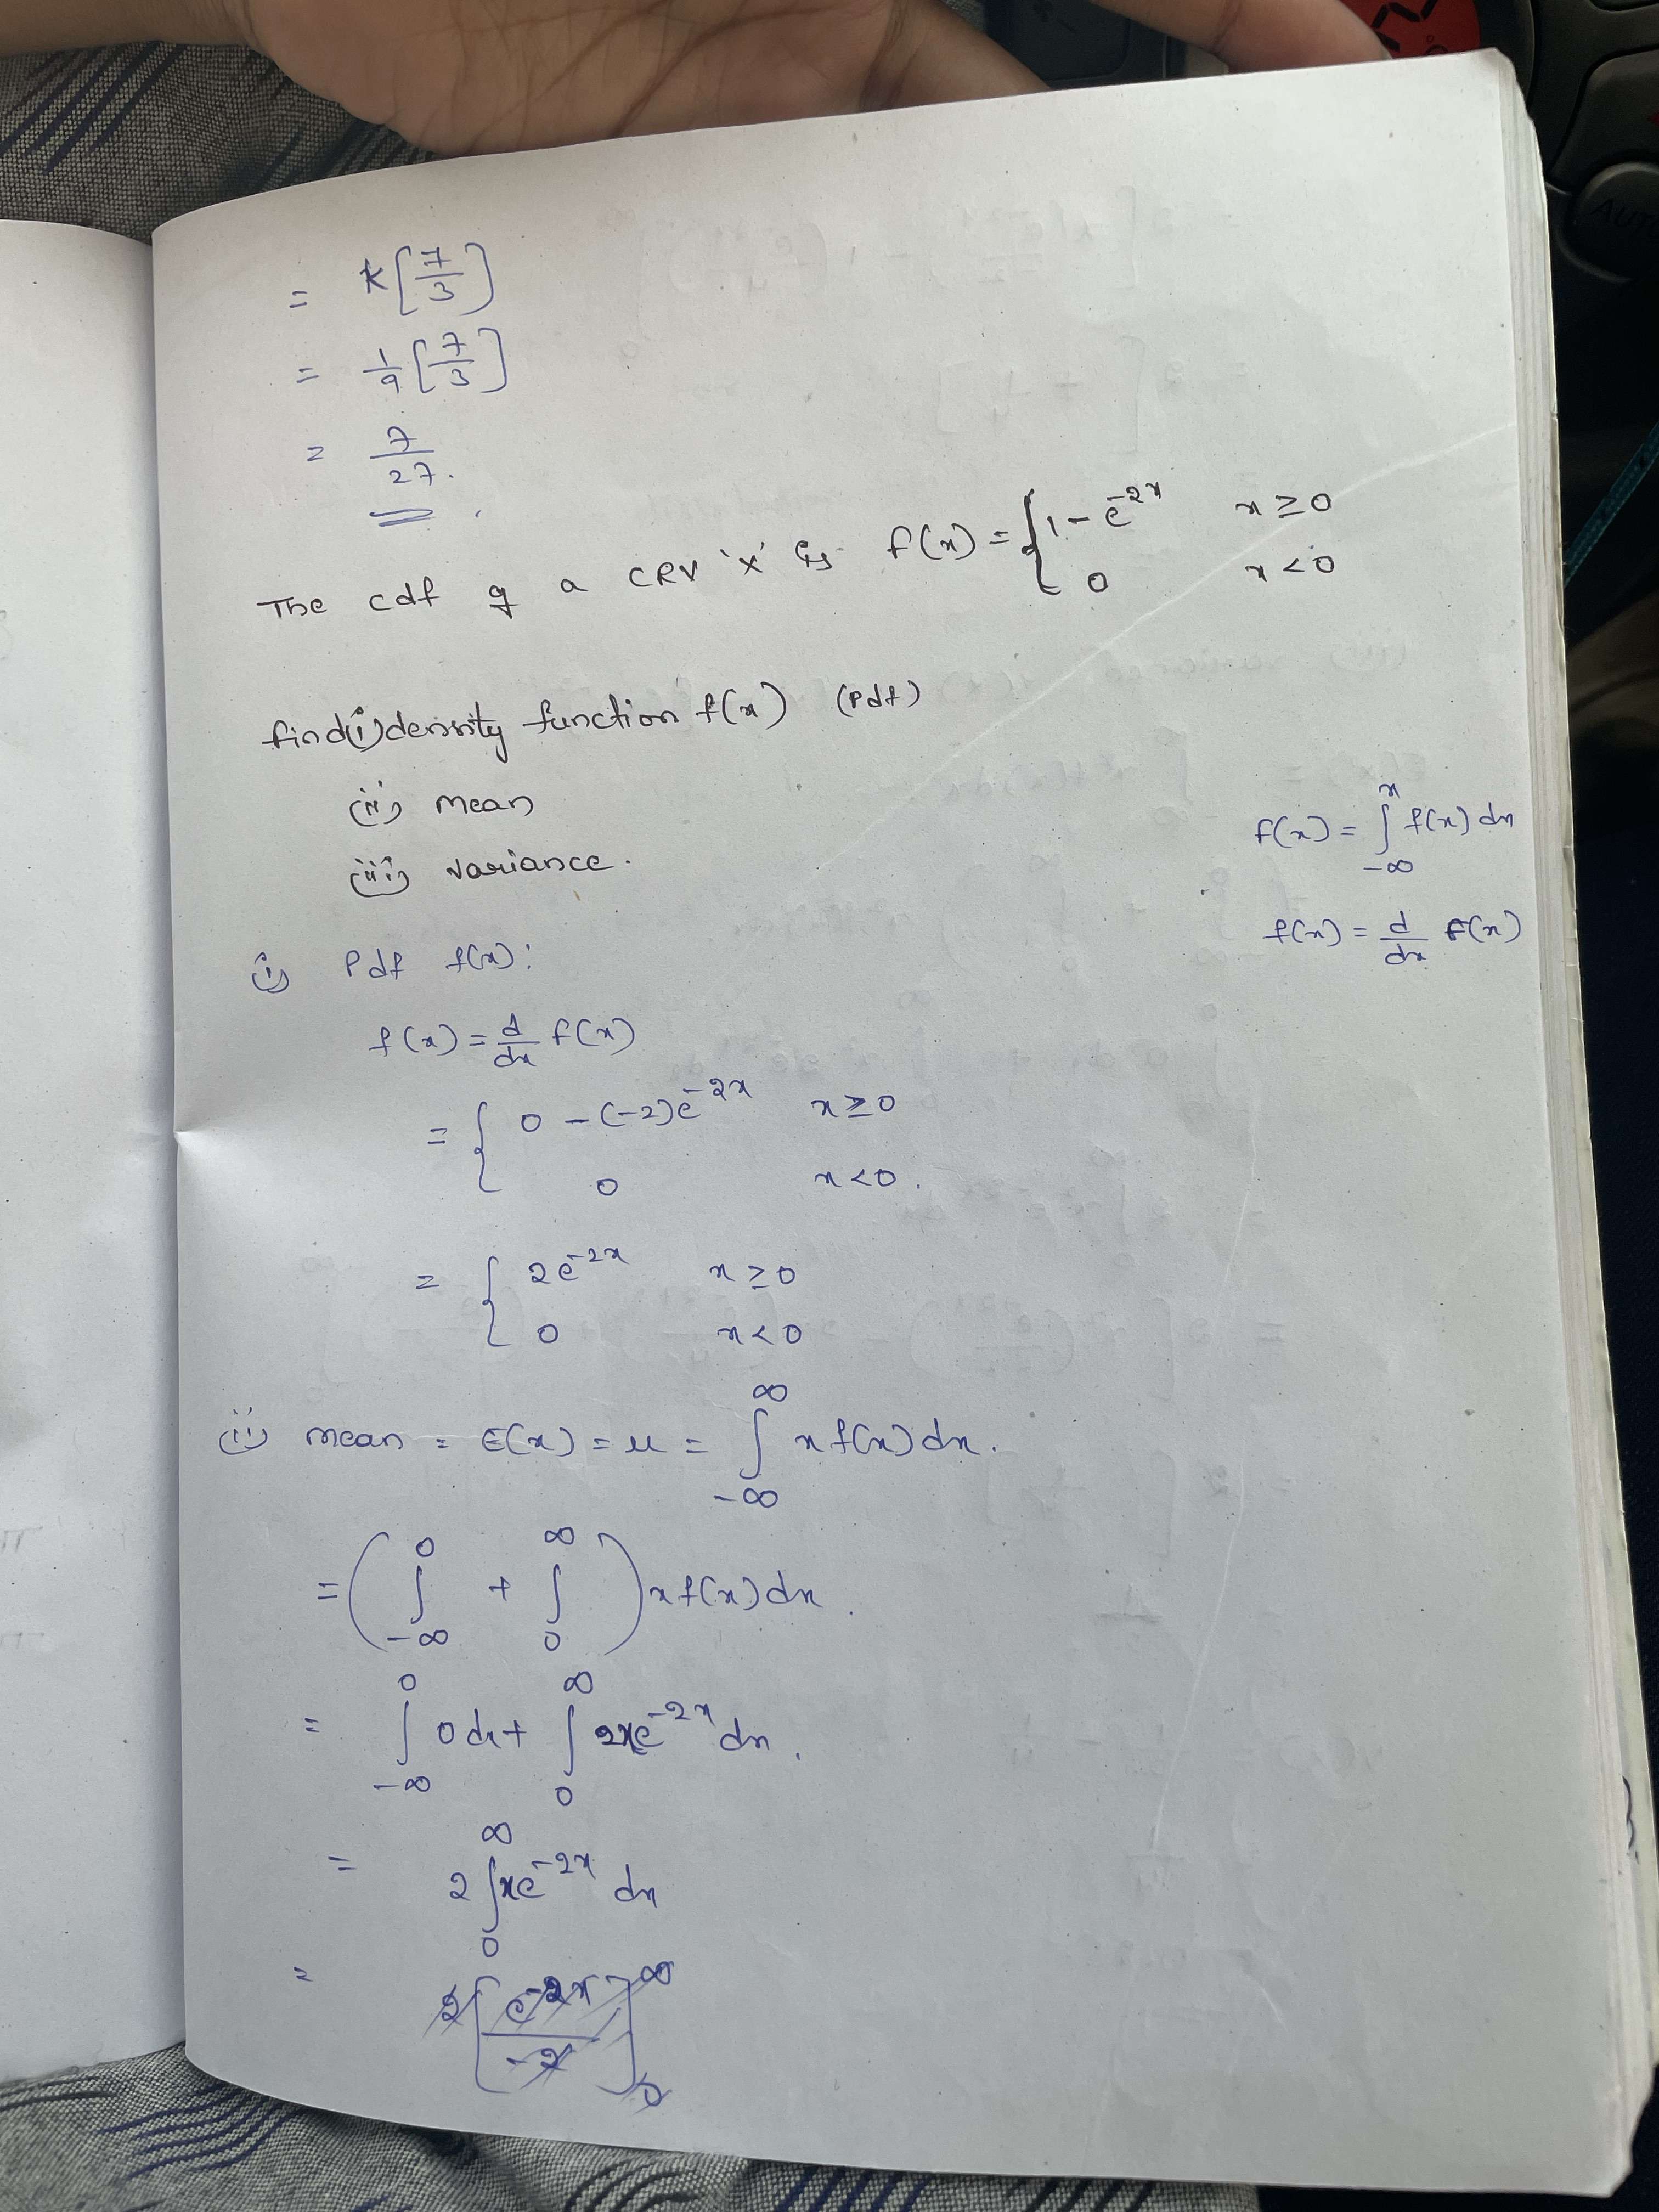 = k[7/3]
= 1/9[7/3]
= 7/27.
The cdf of a CRV 'x' is f(x) = { 1 - e^-2x x ≥ 0
0 x < 0
find (i) density function f(x) (Pdf)
(ii) mean
(iii) variance.
f(x) = ∫_-∞^x f(x) dx
f(x) = d/dx F(x)
(i) Pdf f(x):
f(x) = d/dx f(x)
= { 0 - (-2)e^-2x x ≥ 0
0 x < 0.
= { 2e^-2x x ≥ 0
0 x < 0
(ii) mean = E(x) = μ = ∫_-∞^∞ x f(x) dx.
= ( ∫_-∞^0 + ∫_0^∞ ) x f(x) dx.
= ∫_-∞^0 0 dx + ∫_0^∞ 2xe^-2x dx.
= 2 ∫_0^∞ xe^-2x dx
= 2[e^-2x/-2]_0^∞
AUTO